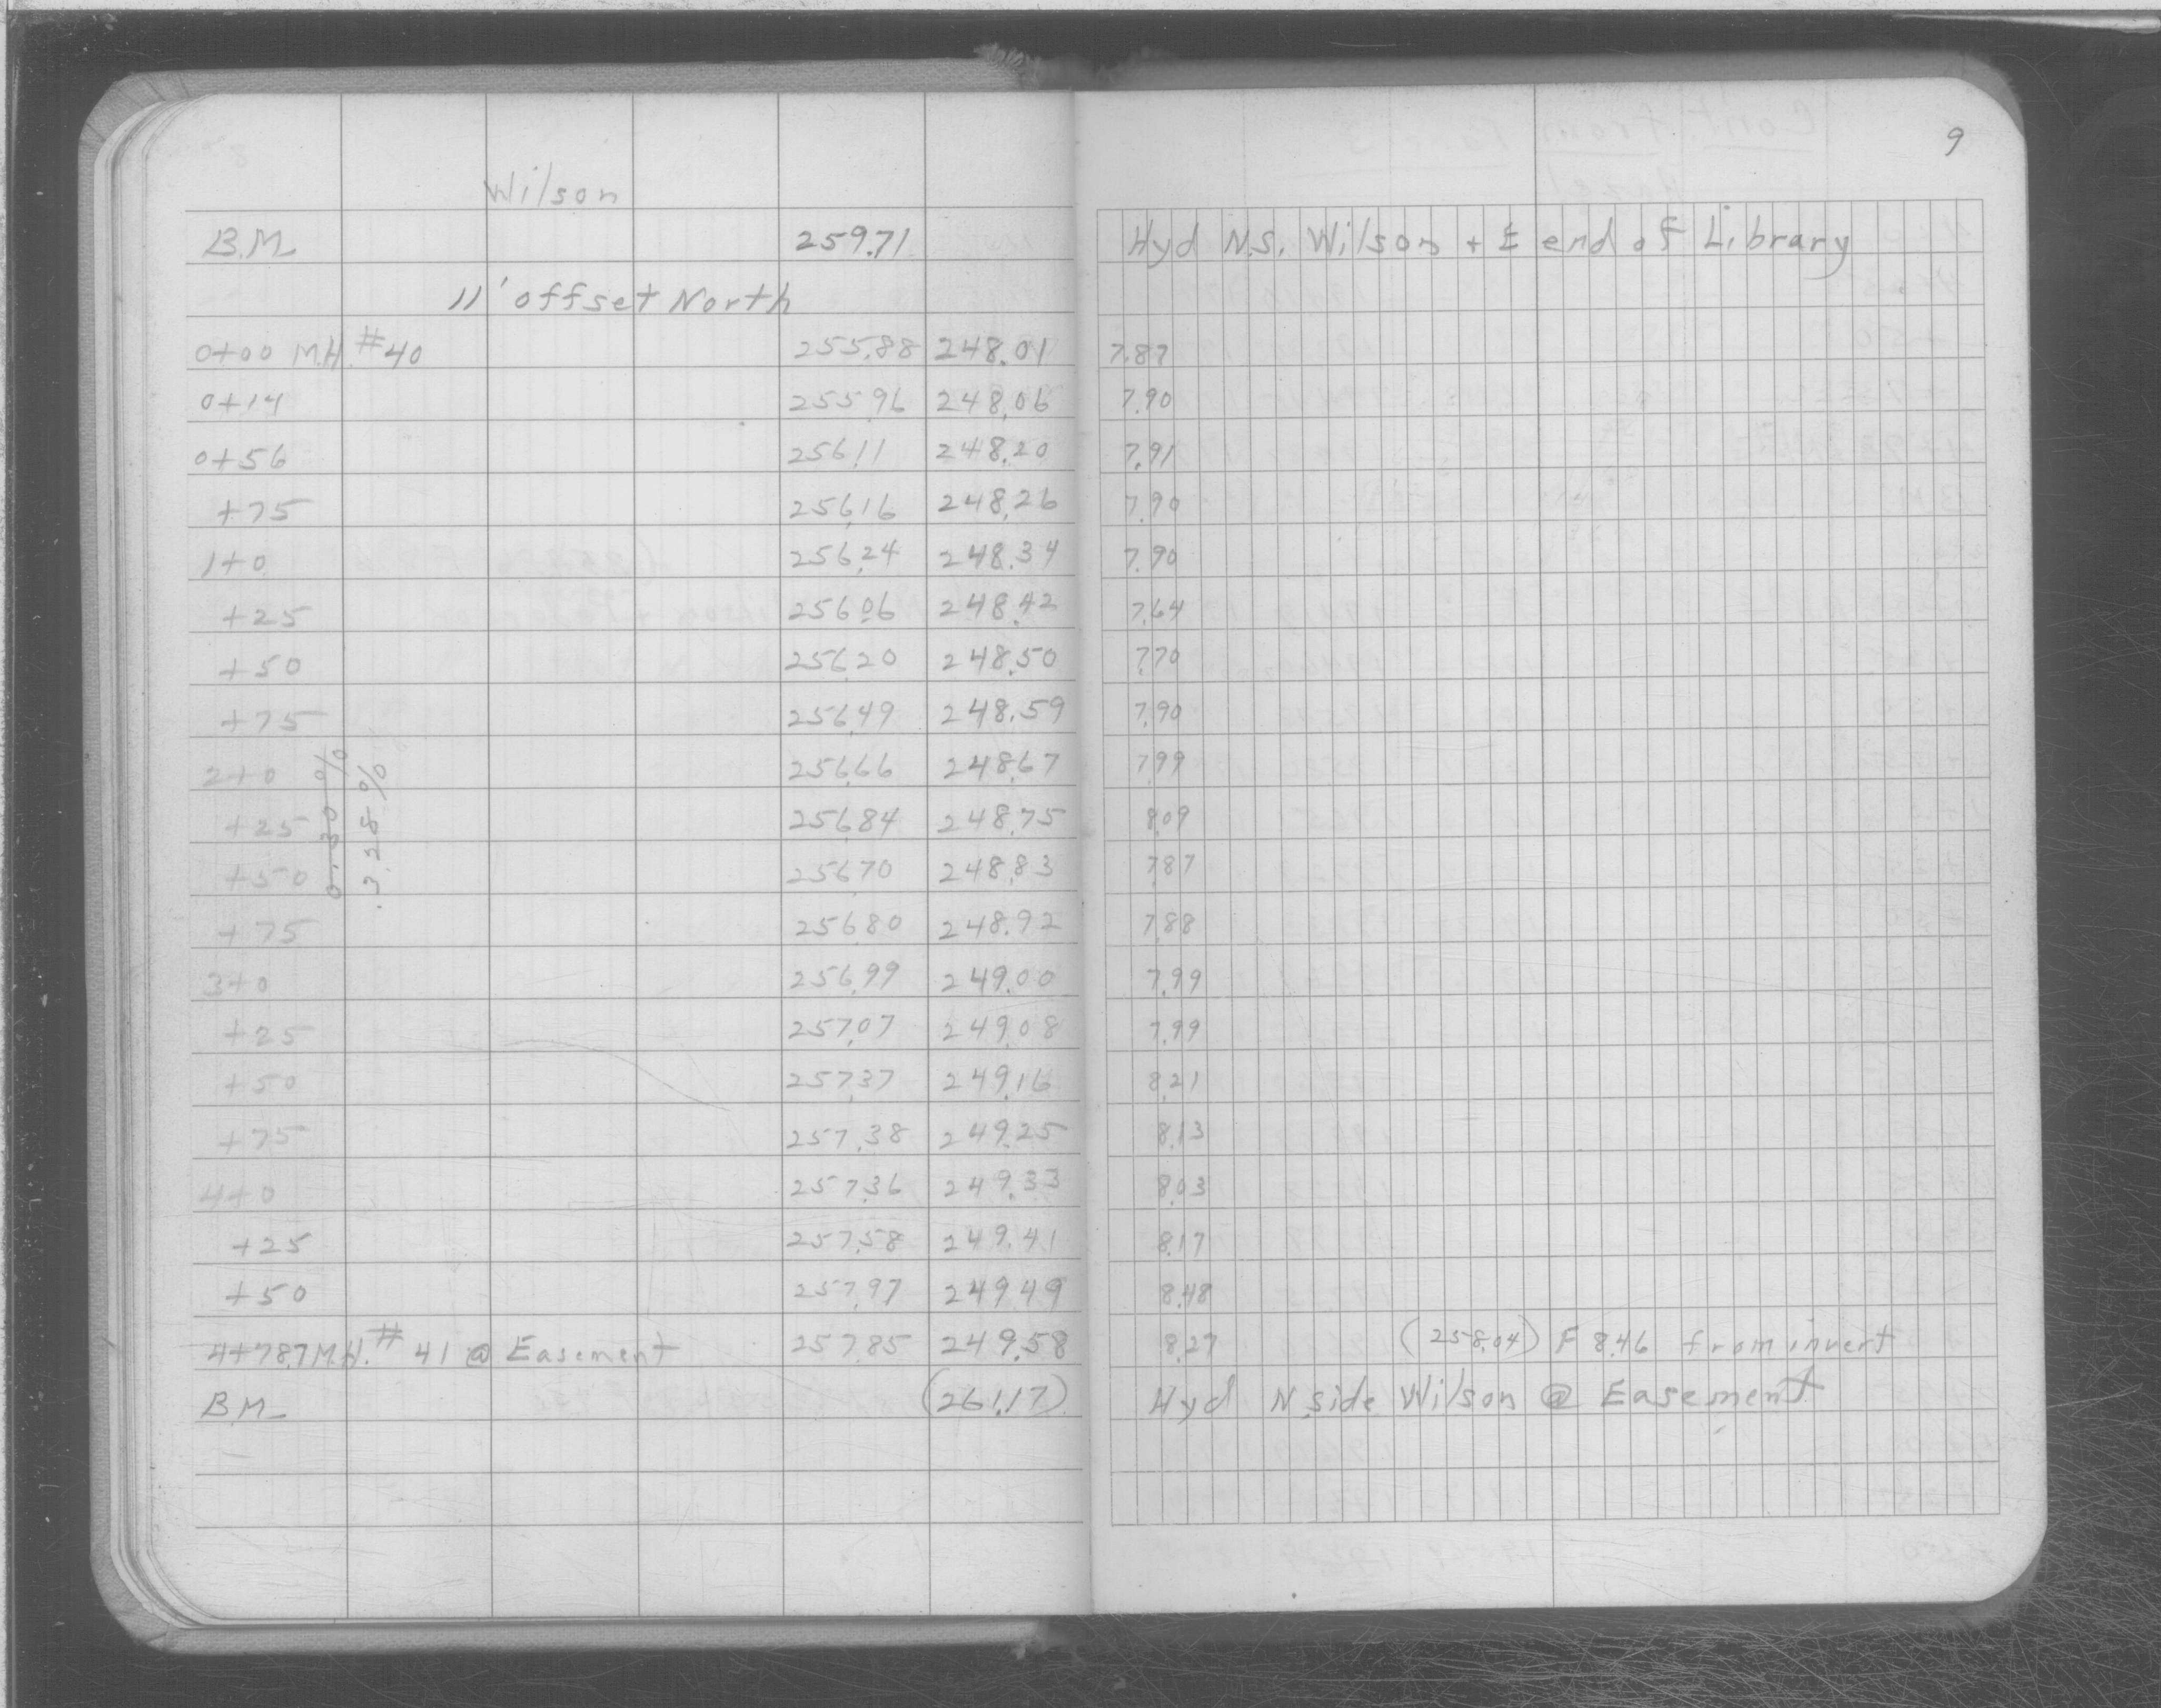 9
Wilson
B.M. 259.71 Hyd N.S. Wilson + E end of Library
11' offset North
0+00 M.H. #40 255.88 248.01 7.87
0+14 255.96 248.06 7.90
0+56 256.11 248.20 7.91
+75 256.16 248.26 7.90
1+0 256.24 248.34 7.90
+25 256.06 248.42 7.64
+50 256.20 248.50 7.70
+75 256.49 248.59 7.90
2+0 256.66 248.67 7.99
+25 256.84 248.75 8.09
+50 256.70 248.83 7.87
+75 256.80 248.92 7.88
3+0 256.99 249.00 7.99
+25 257.07 249.08 7.99
+50 257.37 249.16 8.21
+75 257.38 249.25 8.13
4+0 257.36 249.33 8.03
+25 257.58 249.41 8.17
+50 257.97 249.49 8.48
4+78.7 M.H. #41 @ Easement 257.85 249.58 8.27 (258.04) F 8.46 from invert
B.M. (261.17) Hyd N side Wilson @ Easement